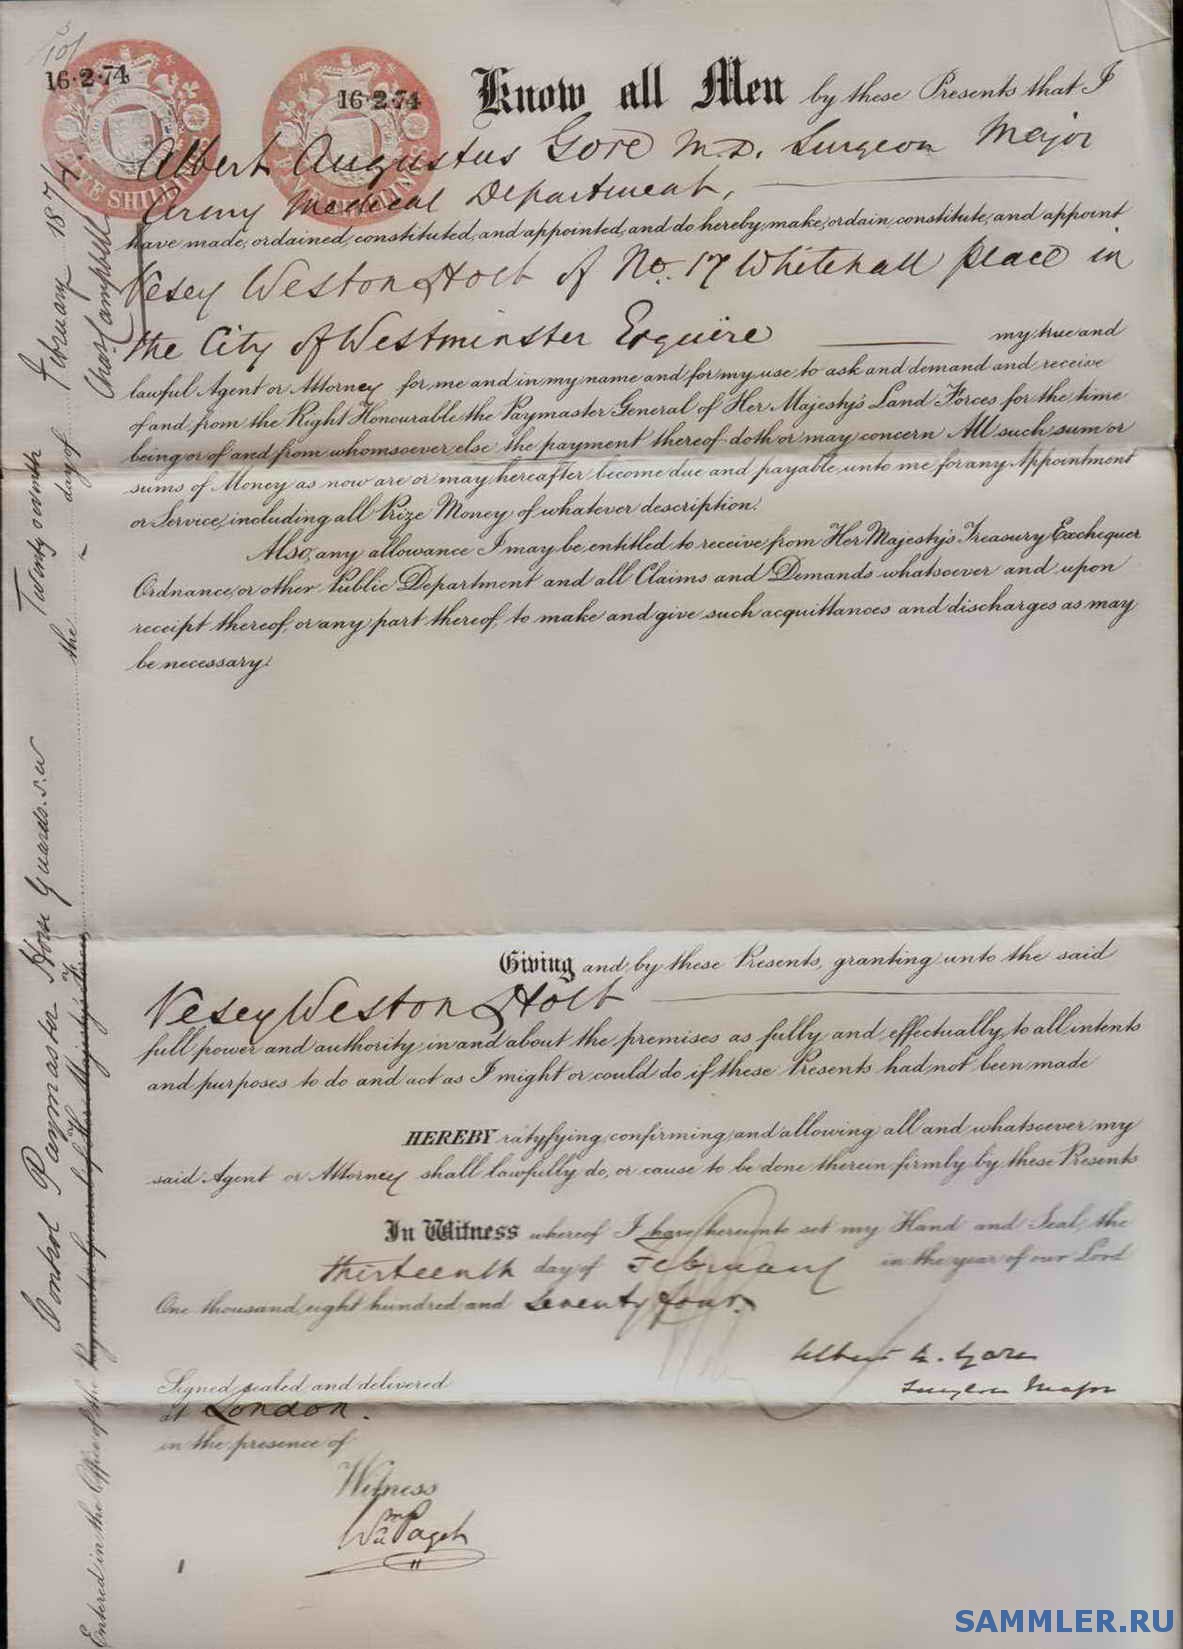 16·2·74
16·2·74
FIVE SHILLINGS
Know all Men by these Presents that I
Albert Augustus Gore M.D. Surgeon Major
Army Medical Department,
have made, ordained, constituted, and appointed, and do hereby, make, ordain, constitute, and appoint
Vesey Weston Holt of No. 17 Whitehall place in
the City of Westminster Esquire my true and
lawful Agent or Attorney for me and in my name and for my use to ask and demand and receive
of and from the Right Honourable the Paymaster General of Her Majesty's Land Forces for the time
being or of and from whomsoever else the payment thereof doth or may concern All such sum or
sums of Money as now are or may hereafter become due and payable unto me for any Appointment
or Service, including all Prize Money of whatever description.
Also, any allowance I may be entitled to receive from Her Majesty's Treasury Exchequer
Ordnance, or other Public Department and all Claims and Demands whatsoever and upon
receipt thereof, or any part thereof, to make and give such acquittances and discharges as may
be necessary.
Giving and by these Presents, granting unto the said
Vesey Weston Holt
full power and authority, in and about the premises as fully and effectually, to all intents
and purposes to do and act as I might or could do if these Presents had not been made
HEREBY ratyfying, confirming, and allowing all and whatsoever my
said Agent or Attorney shall lawfully do, or cause to be done therein firmly by these Presents
In Witness whereof I have hereunto set my Hand and Seal, the
thirteenth day of February in the year of our Lord
One thousand, eight hundred and Seventy four.
Albert A. Gore
Surgeon Major
Signed, sealed and delivered
at London.
in the presence of
Witness
Wm Paget
Entered in the Office of the Paymaster General of Her Majesty's Forces the day of
Control Paymaster Horse Guards. S.W Twenty seventh February 1874.
Chas. Campbell
SAMMLER.RU